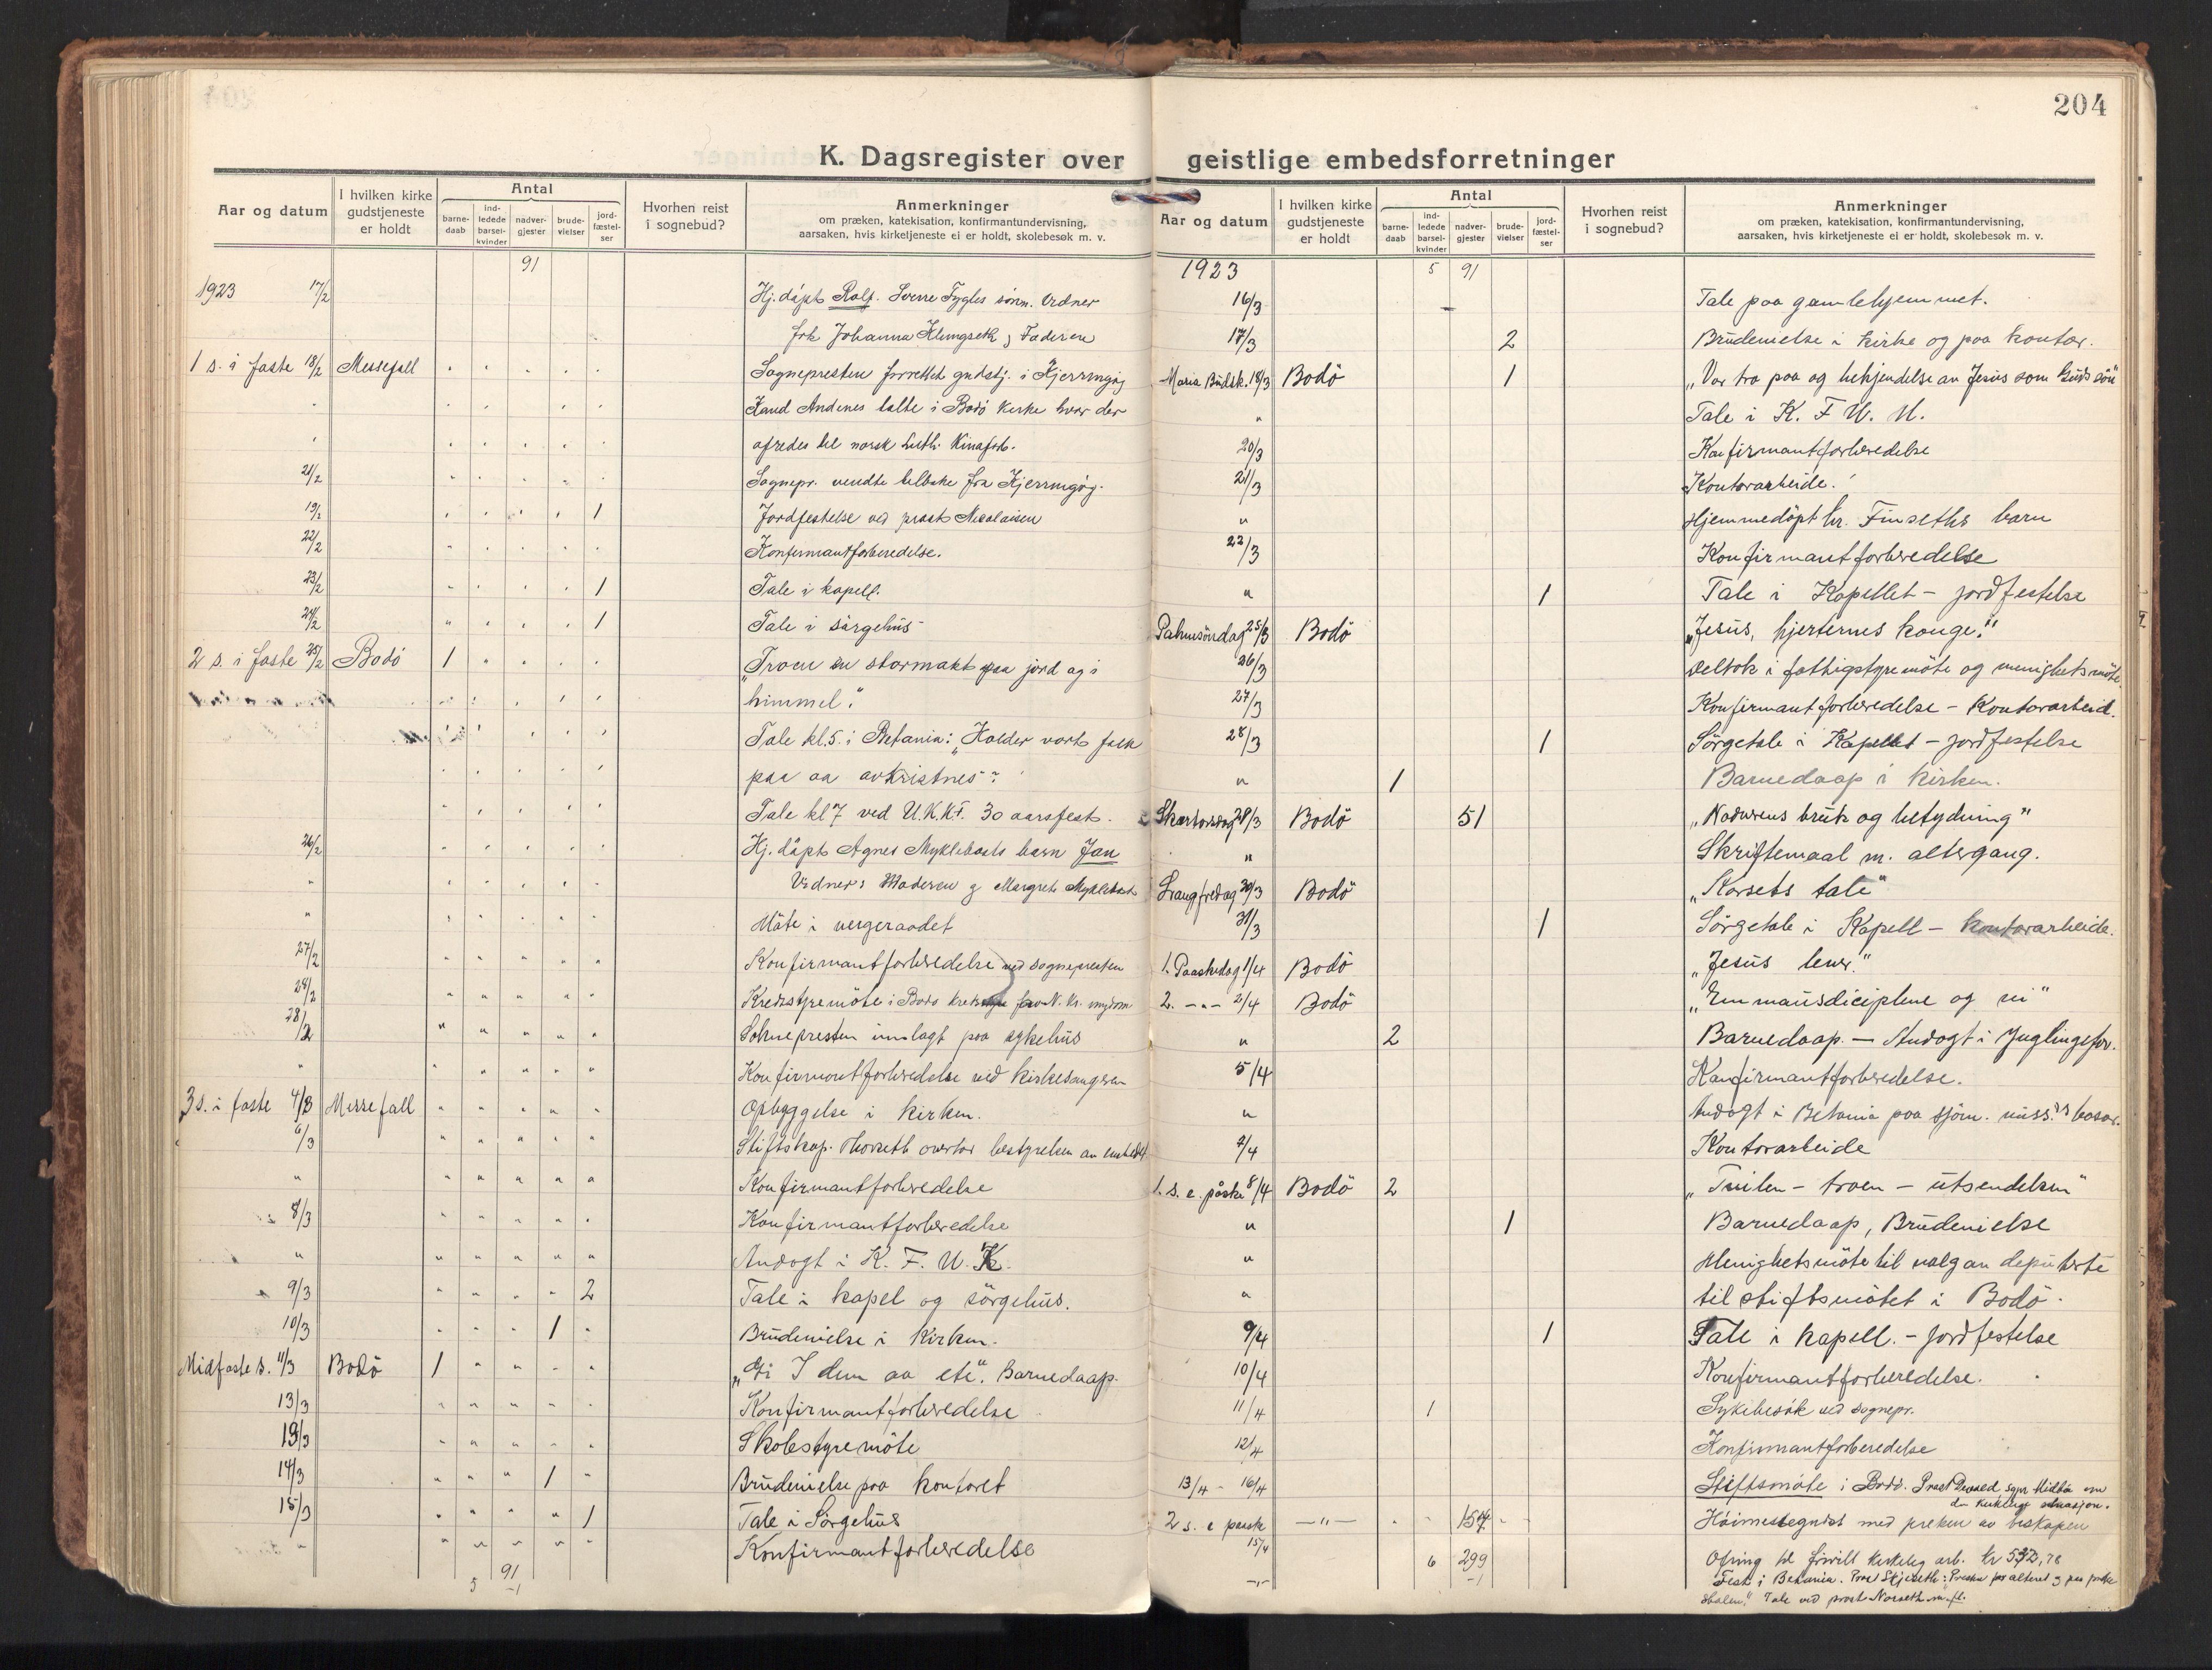 204
K. Dagsregister over geistlige embedsforretninger
Aar og datum
I hvilken kirke gudstjeneste er holdt
Antal
barne-daab
ind-ledede barsel-kvinder
nadver-gjester
brude-vielser
jord-fæstel-ser
Hvorhen reist i sognebud?
Anmerkninger
om præken, katekisation, konfirmantundervisning,
aarsaken, hvis kirketjeneste ei er holdt, skolebesøk m. v.
91
1923 17/2 Hj. døpt Rolf. Sverre Tygles sønn. Vidner
frk Johanna Klungseth, Faderen
1 s. i faste 18/2 Messefall Sognepresten forrettet gudstj. i Kjerringøy
" Kand Andenes talte i Bodö kirke hvor der
" ofredes til norsk luth. Kinaforb.
21/2 Sognepr. vendte tilbake fra Kjerringøy.
19/2 1 Jordfestelse ved prost Nicolaisen
22/2 Konfirmantforberedelse.
23/2 1 Tale i kapell.
24/2 1 Tale i sörgehus
2 s. i faste 25/2 Bodö 1 „Troen en stormakt paa jord og i
himmel."
Tale kl. 5. i Betania: „Holder vort folk
paa aa avkristnes"?
Tale kl 7 ved U.K.K.F. 30 aarsfest.
26/2 Hj. döpt Agnes Myklebosts barn Jan
" Vidner: Moderen og Margret Myklebost
" Möte i vergeraadet
27/2 Konfirmantforberedelse ved sognepresten
28/2 Kredsstyremöte i Bodo
28/2 Soknepresten innlagt paa sykehus
" Konfirmantforberedelse ved kirkesangeren
3 s. i faste 4/3 Messefall Opbyggelse i kirken.
6/3 Stiftskap. Thorseth overtar bestyrelsen av embedet
" Konfirmantforberedelse
8/3 Konfirmantforberedelse
" Andagt i K. F. U. K.
9/3 2 Tale i kapel og sörgehus.
10/3 1 Brudevielse i Kirken.
Midfaste s. 11/3 Bodö 1 „Gi I dem aa ete". Barnedaap.
13/3 Konfirmantforberedelse
13/3 Skolestyremöte
14/3 1 Brudevielse paa kontoret
15/3 1 Tale i Sörgehus
" Konfirmantforberedelse
5 91
Aar og datum
I hvilken kirke gudstjeneste er holdt
Antal
barne-daab
ind-ledede barsel-kvinder
nadver-gjester
brude-vielser
jord-fæstel-ser
Hvorhen reist i sognebud?
Anmerkninger
om præken, katekisation, konfirmantundervisning,
aarsaken, hvis kirketjeneste ei er holdt, skolebesøk m. v.
1923 5 91
16/3 Tale paa gamlehjemmet.
17/3 2 Brudevielse i kirke og paa kontor.
Maria Budsk. 18/3 Bodö 1 „Vor tro paa og bekjendelse av Jesus som Guds sön"
" Tale i K. F. U. M.
20/3 Konfirmantforberedelse
21/3 Kontorarbeide.
" Hjemmedöpt hr. Finseths barn
22/3 Konfirmantforberedelse
" 1 Tale i Kapellet – jordfestelse
Palmesöndag 25/3 Bodö „Jesus, hjerternes konge."
26/3 Deltok i fattigstyremöte og menighetsmöte.
27/3 Konfirmantforberedelse – Kontorarbeid.
28/3 1 Sörgetale i Kapellet – jordfestelse
" 1 Barnedaap i kirken.
Skærtorsdag 29/3 Bodö 51 „Nadverens bruk og betydning"
" Skriftemaal m. altergang.
Langfredag 30/3 Bodö „Korsets tale"
31/3 1 Sörgetale i Kapell – kontorarbeide.
1. Paaskedag 1/4 Bodö „Jesus lever."
2. –"– 2/4 Bodö „Emmausdiciplene og vi"
" 2 Barnedaap. – Andagt i Ynglingefor.
5/4 Konfirmantforberedelse.
" Andagt i Betania paa sjöm. miss. basar.
7/4 Kontorarbeide
1. s. e. påske 8/4 Bodö 2 „Tvilen – troen – utsendelsen"
" 1 Barnedaap, Brudevielse
" Menighetsmöte til valg av deputerte
" til stiftsmötet i Bodö.
9/4 1 Tale i kapell. – Jordfestelse
10/4 Konfirmantforberedelse.
11/4 1 Sykebesök ved sognepr.
12/4 Konfirmantforberedelse
13/4 - 16/4 Stiftsmöte i Bodö. Prost
2 s. e paask 15/4 –"– 157 Höimessegudst med preken av biskopen
6 299 Ofring til frivill kirkelig arb. kr 532,78
–"– Fest i Betania.
Tale ved prost Norseth m. fl.